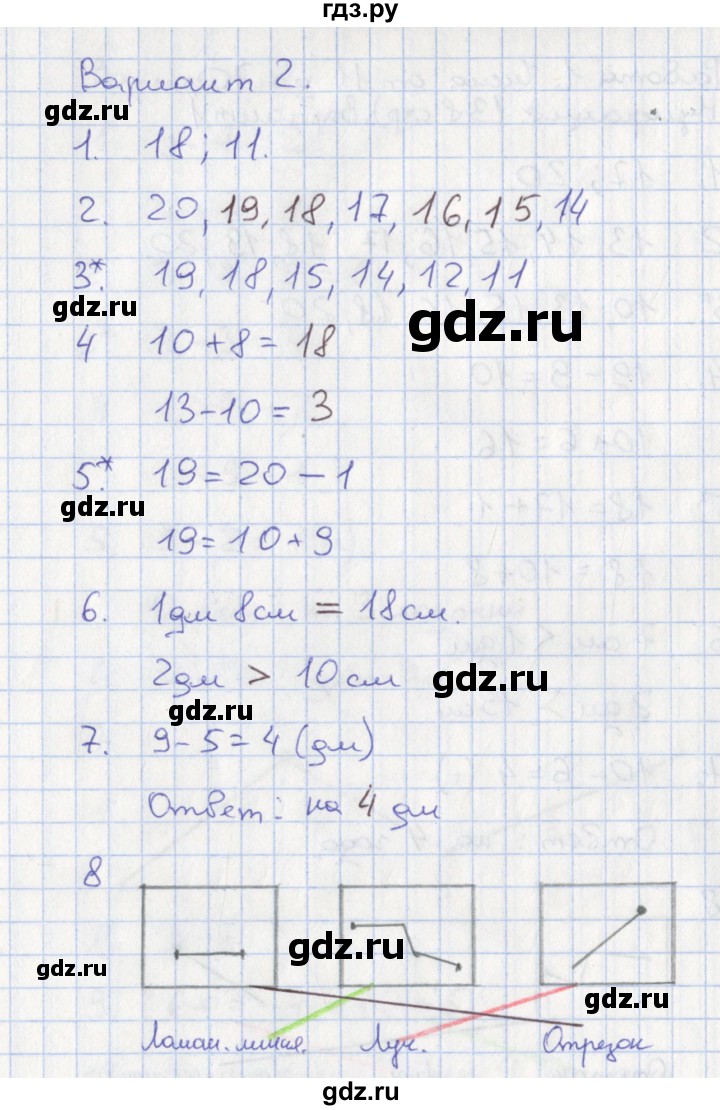 гдз.ру
Вариант 2.
gdz.ru
1. 18; 11.
2. 20, 19, 18, 17, 16, 15, 14
3*. 19, 18, 15, 14, 12, 11
gdz.ru
gdz.ru
4 10 + 8 = 18
13 - 10 = 3
5*. 19 = 20 - 1
gdz.ru
19 = 10 + 9
6. 1дм 8см = 18см.
2дм > 10см
gdz.ru
gdz.ru
7. 9 - 5 = 4 (дм)
Ответ: на 4 дм
8
gdz.ru
gdz.ru
gdz.ru
Ломан. линия. Луч. Отрезок
gdz.ru